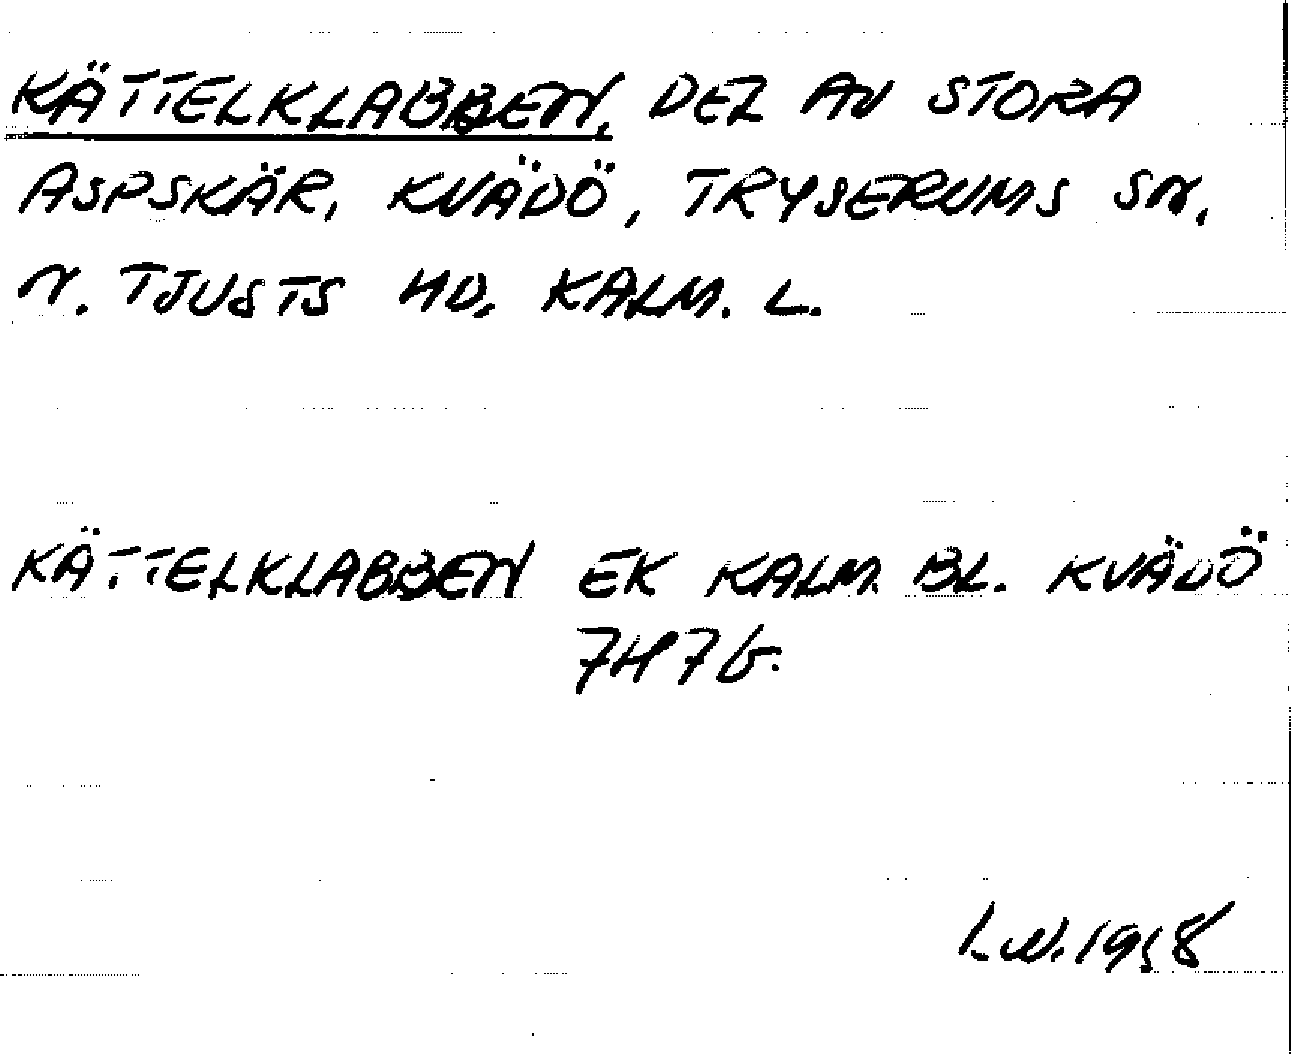 KÄTTELKLABBEN, DEL AV STORA
ASPSKÄR, KVÄDÖ, TRYSERUMS SN,
N. TJUSTS HD, KALM. L.
KÄTTELKLABBEN EK KALM. BL. KVÄDÖ
7H7G.
L.W. 1958